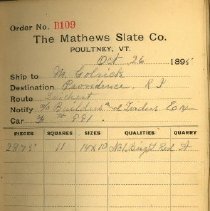 Order No. D109
The Mathews Slate Co.
POULTNEY, VT.
Oct 26 189
Ship to M. Golrick
Destination Providence, R I
Route
Notify Builders and Traders Ex
Car 981
PIECES SQUARES SIZES QUALITIES QUARRY
2875 11 14x10 No 1 Bright Red